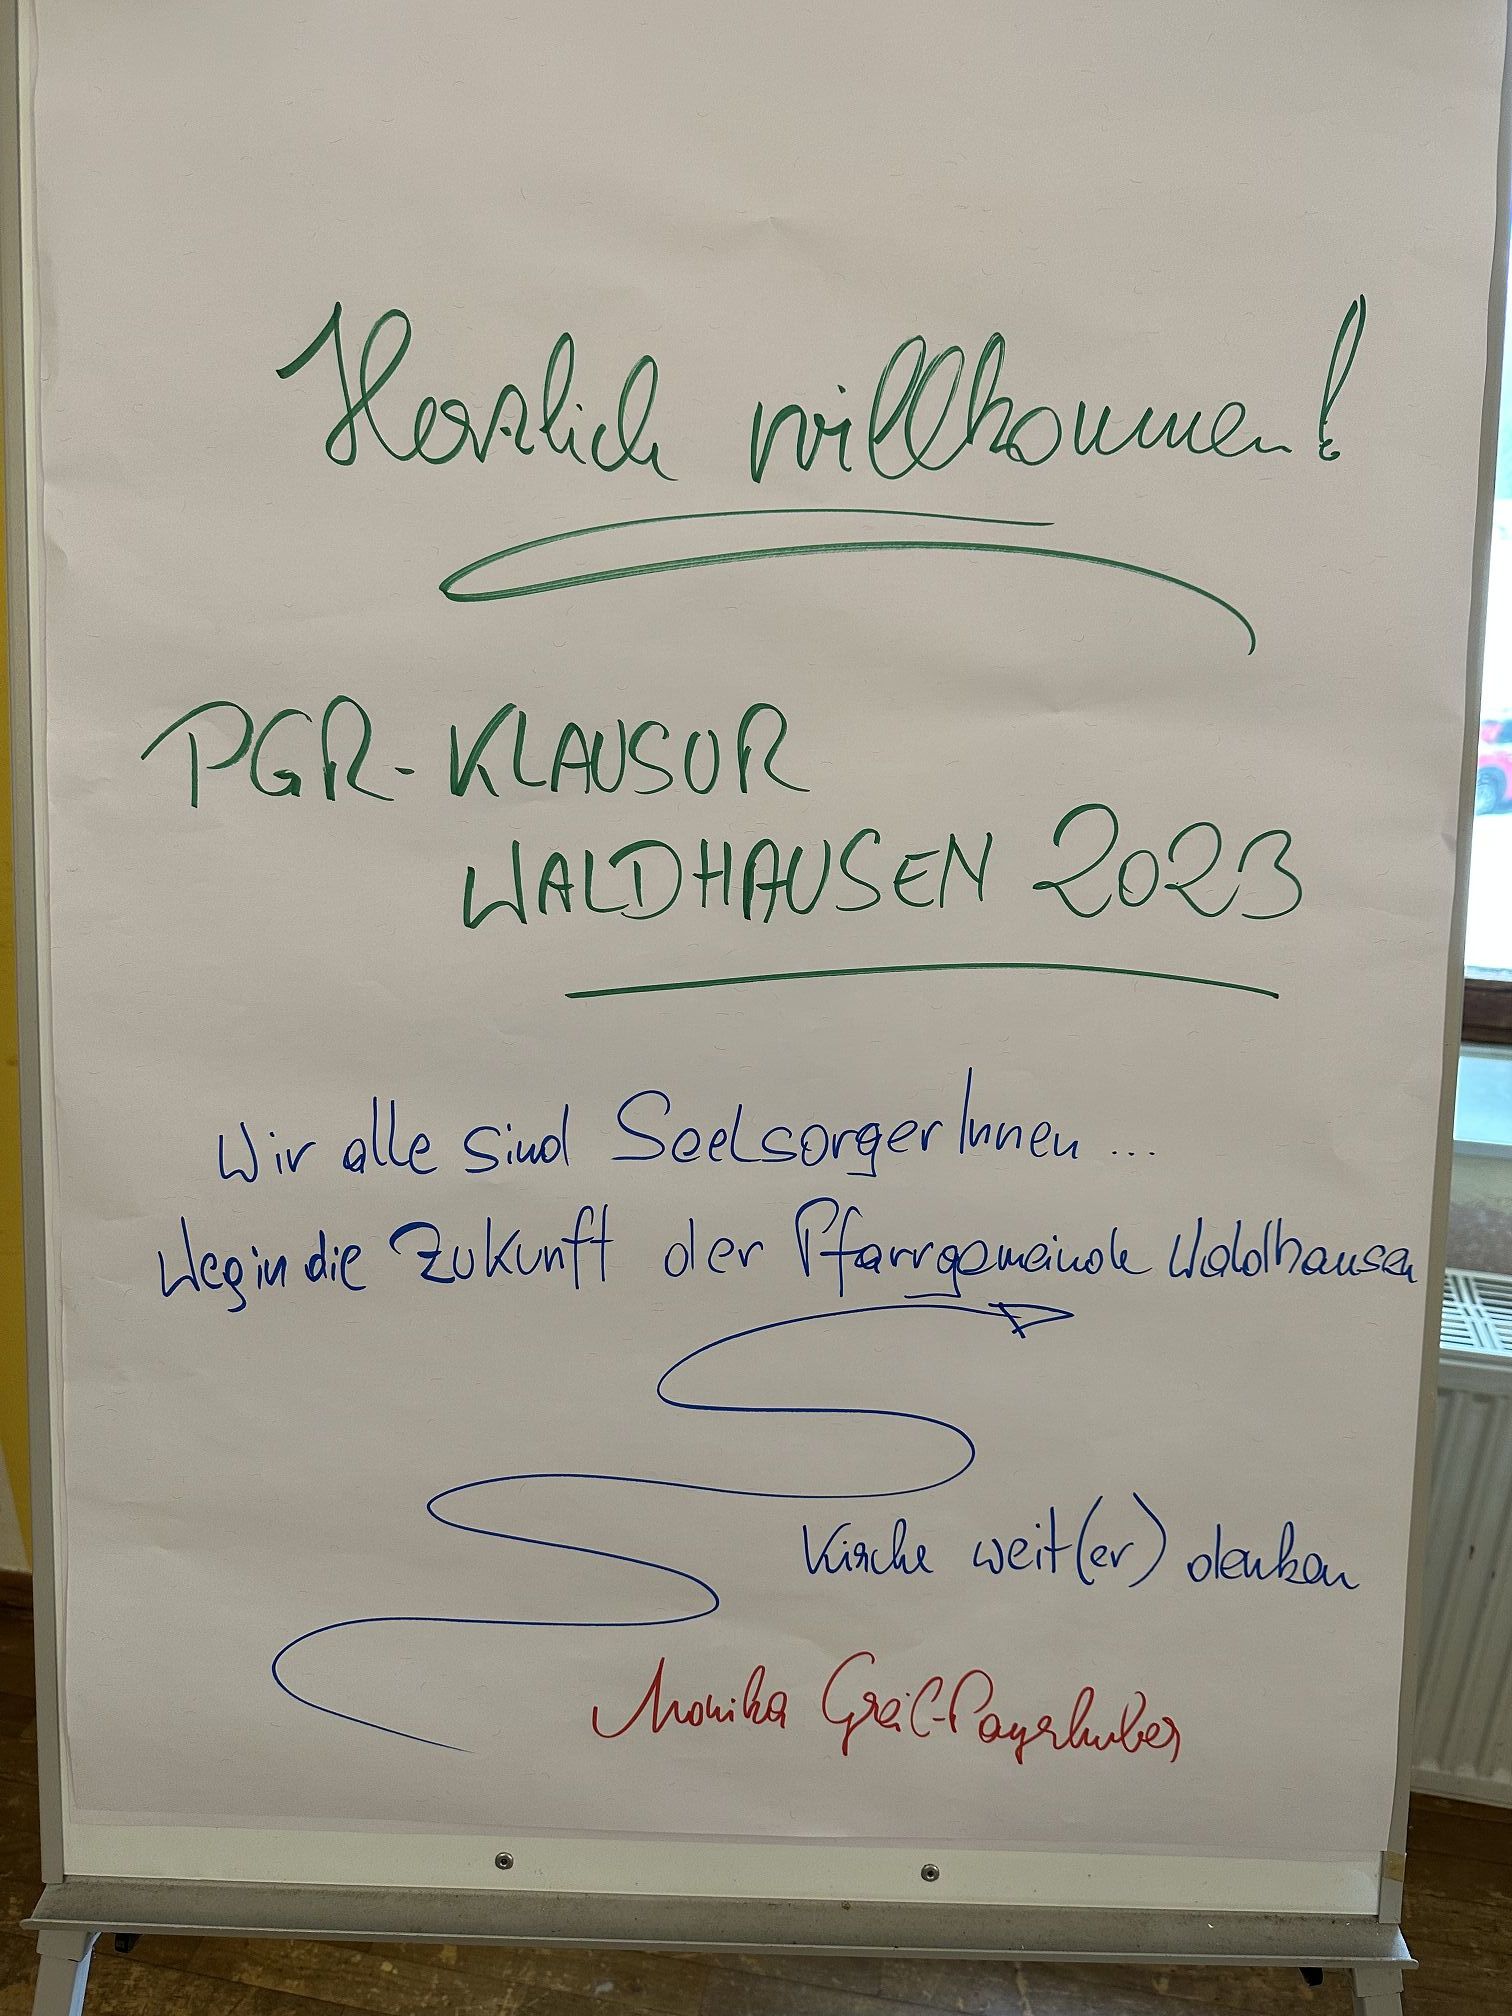 Herzlich willkommen!
PGR-KLAUSUR
WALDHAUSEN 2023
Wir alle sind SeelsorgerInnen...
Weg in die Zukunft der Pfarrgemeinde Waldhausen
Kirche weit(er) denken
Monika Greil-Payrhuber